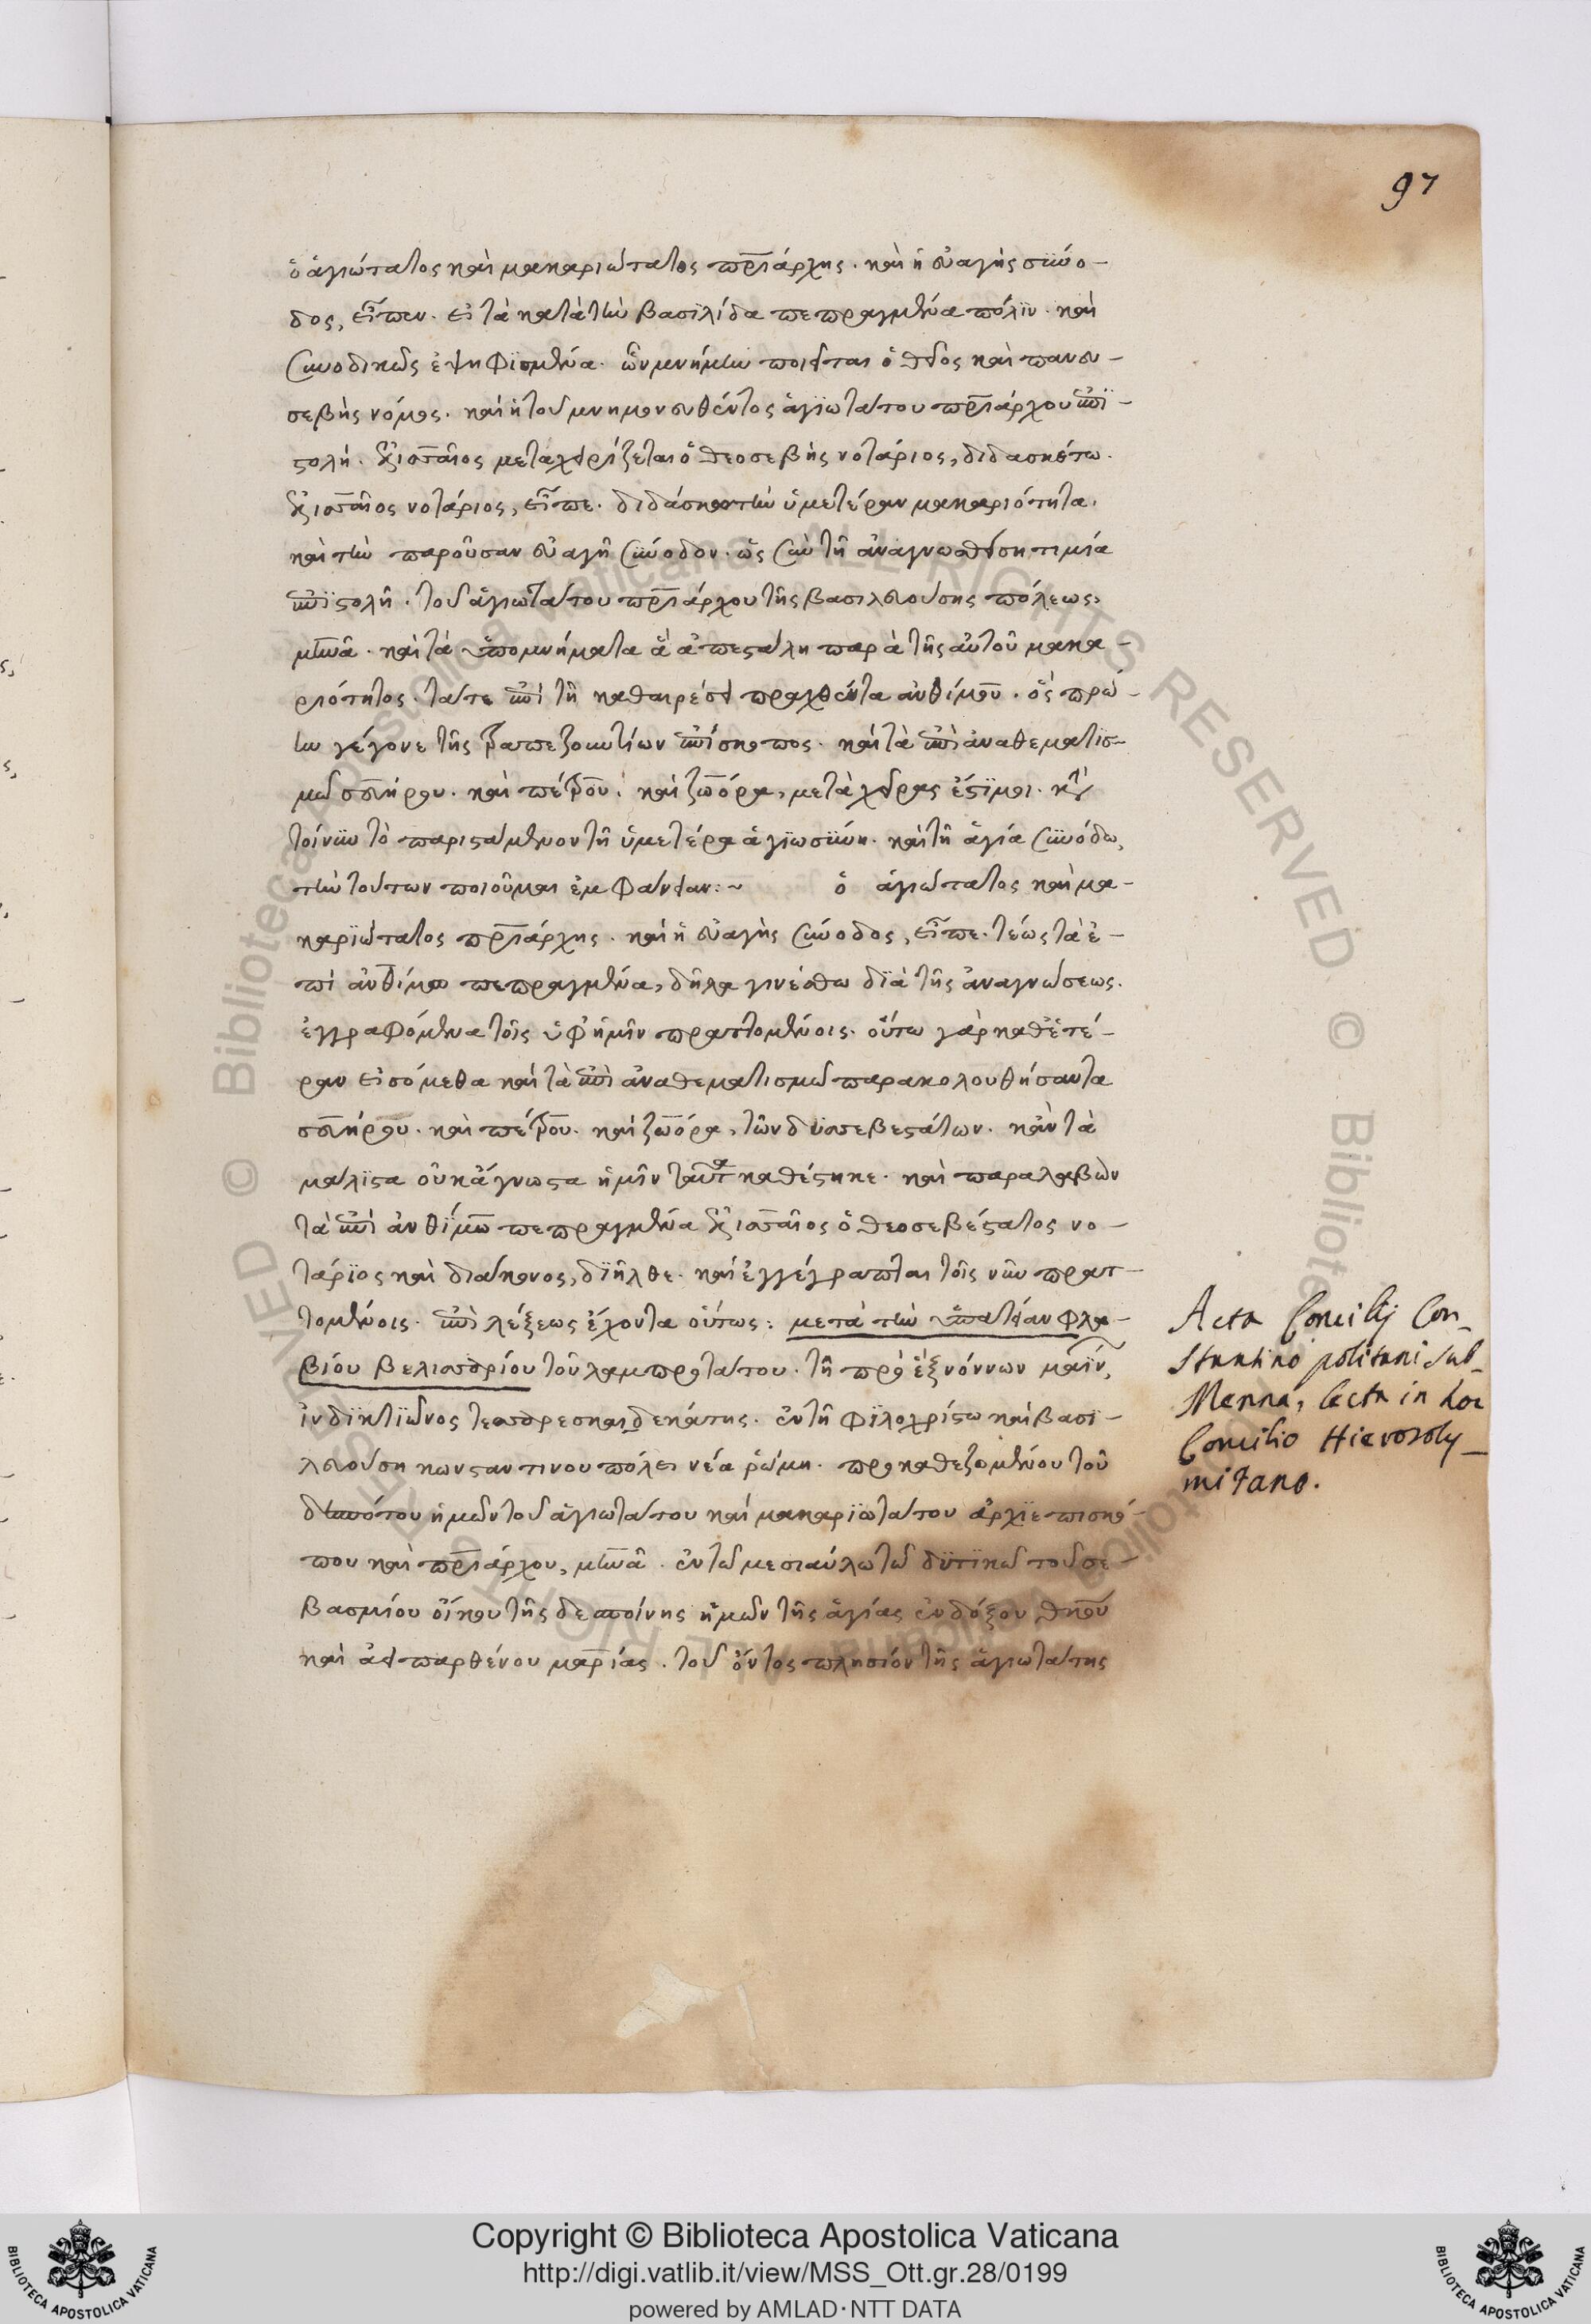 97
ὁ ἁγιώτατος καὶ μακαριώτατος πριάρχης. καὶ ἡ εὐαγὴς σύνο-
δος, εἶπεν. εἰ τὰ κατὰ τὴν βασιλίδα πεπραγμένα πόλιν. καὶ
συνοδικῶς ἐψηφισμένα. ὧν μνήμην ποιεῖται ὁ θεῖος καὶ πανευ-
σεβὴς νόμος. καὶ ἡ τοῦ μνημονευθέντος ἁγιωτάτου πριάρχου ἐπι-
στολή. μεταχειρίζεται ὁ θεοσεβὴς νοτάριος, διδασκέτω.
νοτάριος, εἶπε. διδάσκω τὴν ὑμετέραν μακαριότητα.
καὶ τὴν παροῦσαν εὐαγῆ σύνοδον. ὡς σὺν τῇ ἀναγνωσθείσῃ τιμία
ἐπιστολῇ. τοῦ ἁγιωτάτου πριάρχου τῆς βασιλευούσης πόλεως,
μηνᾶ. καὶ τὰ ὑπομνήματα ἃ ἀπεστάλη παρὰ τῆς αὐτοῦ μακα-
ριότητος. τά τε ἐπὶ τῇ καθαιρέσει πραχθέντα ἀνθίμου. ὃς πρώ-
ην γέγονε τῆς τραπεζουντίων ἐπίσκοπος. καὶ τὰ ἐπὶ ἀναθεματισ-
μῶ σευήρου. καὶ πέτρου. καὶ ζωόρα, μετὰ χεῖρας ἐστί μοι. καὶ
τοίνυν τὸ παριστάμενον τῇ ὑμετέρα ἁγιωσύνῃ. καὶ τῇ ἁγία συνόδω,
τὴν τούτων ποιοῦμαι ἐμφάνειαν:~ ὁ ἁγιώτατος καὶ μα-
καριώτατος πριάρχης. καὶ ἡ εὐαγὴς σύνοδος, εἶπε. τέως τὰ ἐ-
πὶ ἀνθίμω πεπραγμένα, δῆλα γινέσθω διὰ τῆς ἀναγνώσεως.
ἐγγραφόμενα τοῖς ὑφ' ἡμῖν πραττομένοις. οὕτω γὰρ καθ' ἑτέ-
ραν εἰσόμεθα καὶ τὰ ἐπὶ ἀναθεματισμῶ παρακολουθήσαντα
σευήρου. καὶ πέτρου. καὶ ζωόρα, τῶν δυσσεβεστάτων. κἂν τὰ
μάλιστα οὐκ ἄγνωστα ἡμῖν ταῦτα καθέστηκε. καὶ παραλαβὼν
τὰ ἐπὶ ἀνθίμω πεπραγμένα ὁ θεοσεβέστατος νο-
τάριος καὶ διάκονος, διῆλθε. καὶ ἐγγέγραπται τοῖς νῦν πρατ-
τομένοις. ἐπὶ λέξεως ἔχοντα οὕτως: μετὰ τὴν ὑπατείαν φλα-
βίου βελισσαρίου τοῦ λαμπροτάτου. τῇ πρὸ ἓξ νόννων μαΐν,
ἰνδικτιῶνος τεσσαρεσκαιδεκάτης. ἐν τῇ φιλοχρίστω καὶ βασι-
λευούσῃ κωνσταντινουπόλει νέα ῥώμῃ. προκαθεζομένου τοῦ
δεσπότου ἡμῶν τοῦ ἁγιωτάτου καὶ μακαριωτάτου ἀρχιεπισκό-
που καὶ πριάρχου, μηνᾶ. ἐν τῶ μεσιαύλω τῶ δυτικῶ τοῦ σε-
βασμίου οἴκου τῆς δεσποίνης ἡμῶν τῆς ἁγίας ἐνδόξου θκου
καὶ ἀειπαρθένου μαρίας. τοῦ ὄντος πλησιόν τῆς ἁγιωτάτης
Acta Concilij Con-
stantinopolitani sub
Menna, lecta in hoc
Concilio Hierosoly-
mitano.
Copyright © Biblioteca Apostolica Vaticana
http://digi.vatlib.it/view/MSS_Ott.gr.28/0199
powered by AMLAD·NTT DATA